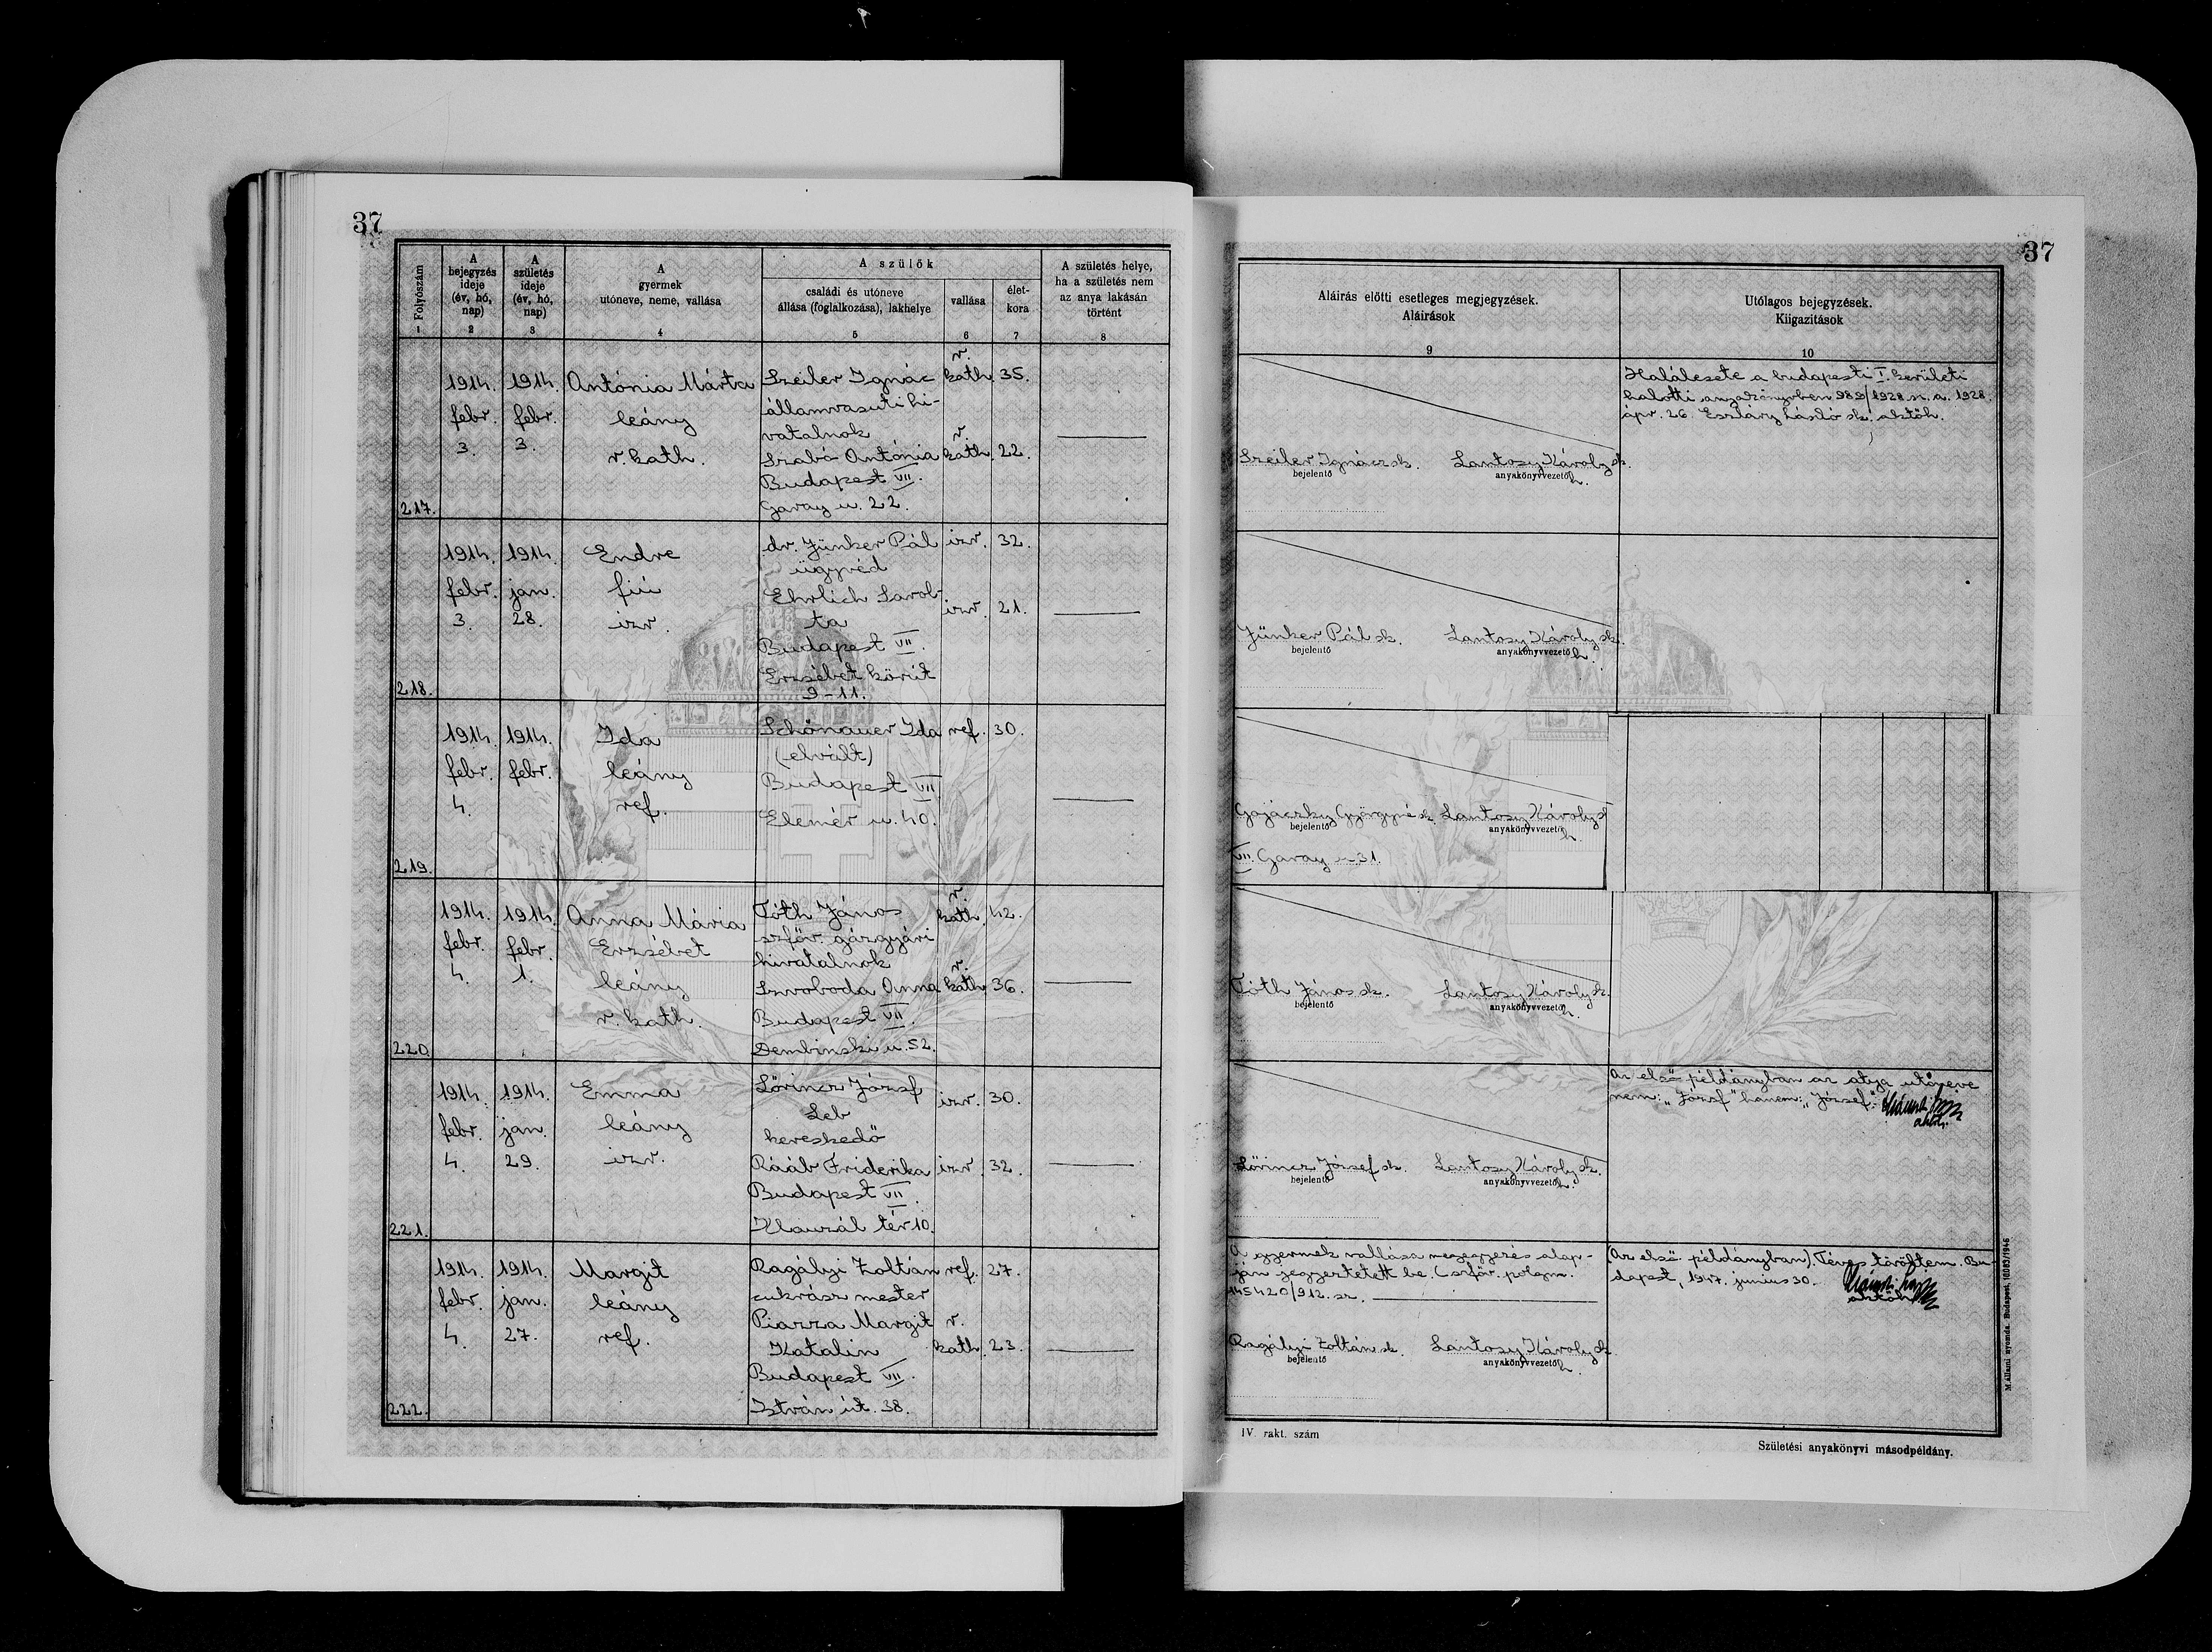 37
Folyószám
1
A
bejegyzés
ideje
(év, hó,
nap)
2
A
születés
ideje
(év, hó,
nap)
3
A
gyermek
utóneve, neme, vallása
4
A szülők
családi és utóneve
állása (foglalkozása), lakhelye
5
vallása
6
élet-
kora
7
A születés helye,
ha a születés nem
az anya lakásán
történt
8
217.
1914.
febr.
3.
1914.
febr.
3.
Antónia Márta
leány
r. kath.
Szeiler Ignác
államvasuti hi-
vatalnok
Szabó Antónia
Budapest VII.
Garay u. 22.
r.
kath.
r.
kath.
35.
22.
218.
1914.
febr.
3.
1914.
jan.
28.
Endre
fiú
izr.
dr. Jünker Pál
ügyvéd
Ehrlich Sarol-
ta
Budapest VII.
Erzsébet körút
9-11.
izr.
izr.
32.
21.
219.
1914.
febr.
4.
1914.
febr.
Ida
leány
ref.
Schönauer Ida
(elvált)
Budapest VII
Elemér u. 40.
ref.
30.
220.
1914.
febr.
4.
1914.
febr.
1.
Anna Mária
Erzsébet
leány
r. kath.
Tóth János
szföv. gázgyári
hivatalnok
Szvoboda Anna
Budapest VII.
Dembinski u. 52.
r.
kath.
r.
kath.
42.
36.
221.
1914.
febr.
4.
1914.
jan.
29.
Emma
leány
izr.
Lörincz Józsf
Leb
kereskedő
Rááb Friderika
Budapest VII.
Klauzál tér 10.
izr.
izr.
30.
32.
222.
1914.
febr.
4.
1914.
jan.
27.
Margit
leány
ref.
Ragályi Zoltán
cukrász mester
Piazza Margit
Katalin
Budapest VII.
István út. 38.
ref.
r.
kath.
27.
23.
37
Aláírás előtti esetleges megjegyzések.
Aláírások
9
Utólagos bejegyzések.
Kiigazítások
10
Szeiler Ignácz sk. Lantosy Károly sk.
bejelentő anyakönyvvezető h.
Halálesete a budapesti I. kerületi
halotti anyakönyvben 989/1928 sz. a. 1928.
ápr. 26. Eszláry László sk. aksztöh.
Jünker Pál sk. Lantosy Károly sk.
bejelentő anyakönyvvezető h.
Györgyné sk. Lantosy Károly sk
bejelentő anyakönyvvezető h.
VII. Garay u. 31.
Tóth János sk. Lantosy Károly sk.
bejelentő anyakönyvvezető h.
Lörincz József sk. Lantosy Károly sk.
bejelentő anyakönyvvezető h.
Az első példányban az atya utóneve
nem: „Józsf" hanem: „József".
A gyermek vallása megegyezés alap-
ján jegyeztetett be. (szföv. polgm.
145420/912. sz.
Ragályi Zoltán sk. Lantosy Károly sk
bejelentő anyakönyvvezető h.
(Az első példányban). Téves töröltem. Bu-
dapest, 1947. junius 30.
IV. rakt. szám
Születési anyakönyvi másodpéldány.
M. Állami nyomda. Budapest, 10083/1946